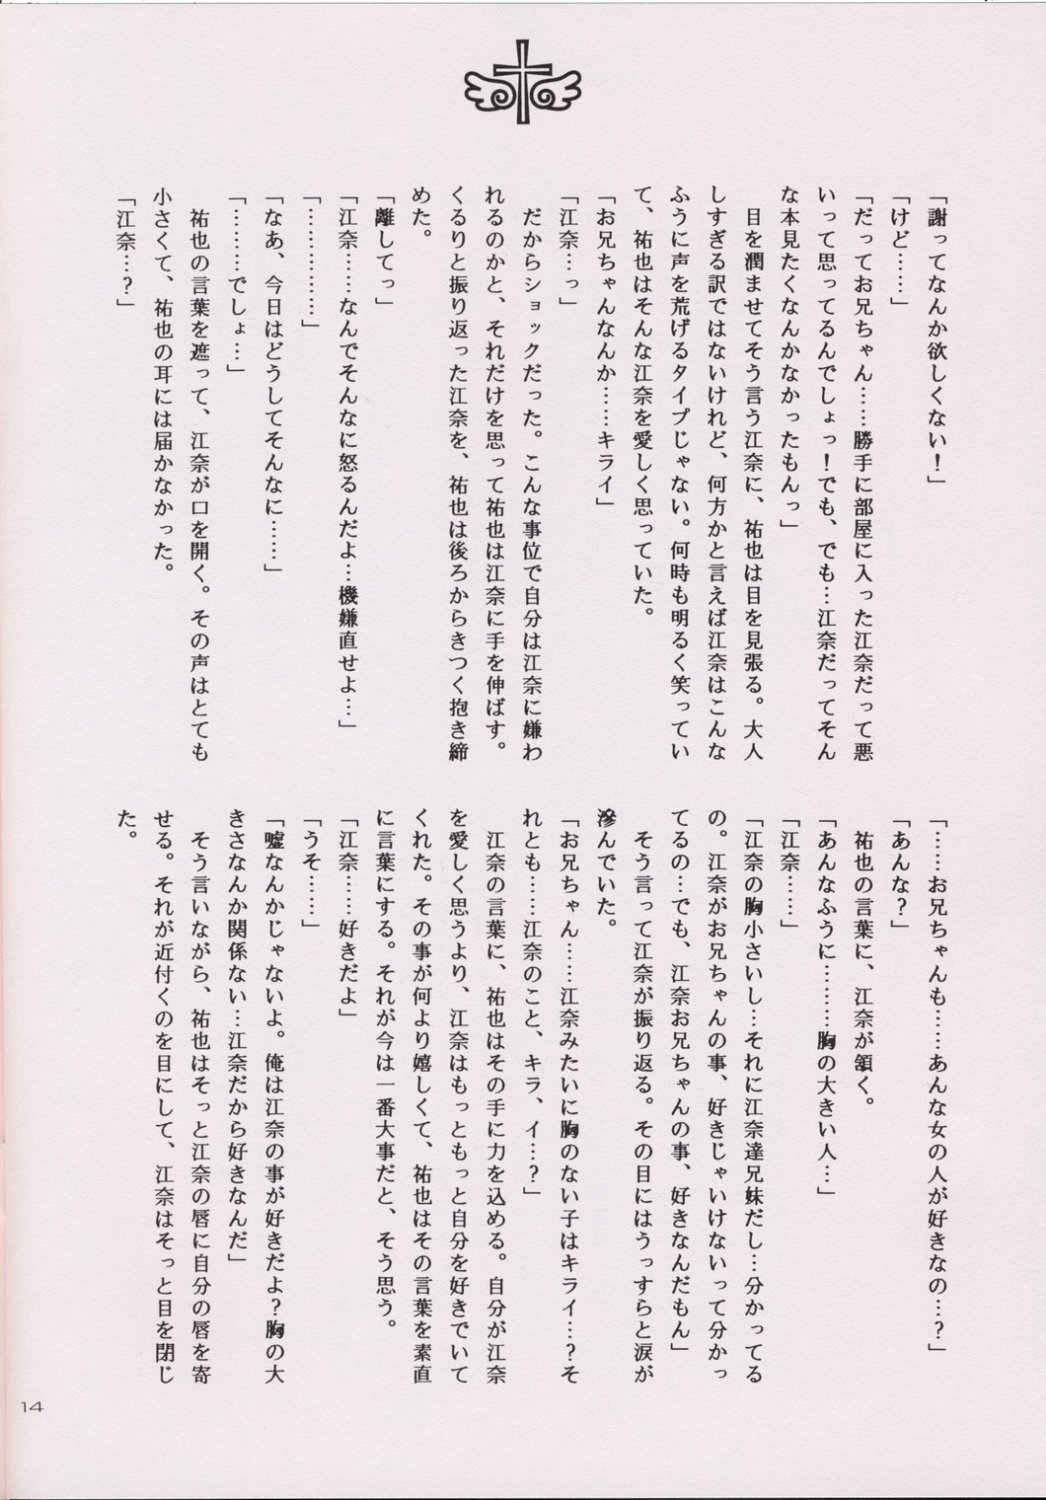 「謝ってなんか欲しくない！」
「けど……」
「だってお兄ちゃん……勝手に部屋に入った江奈だって悪
いって思ってるんでしょっ！でも、でも…江奈だってそん
な本見たくなんかなかったもんっ」
　目を潤ませてそう言う江奈に、祐也は目を見張る。大人
しすぎる訳ではないけれど、何方かと言えば江奈はこんな
ふうに声を荒げるタイプじゃない。何時も明るく笑ってい
て、祐也はそんな江奈を愛しく思っていた。
「お兄ちゃんなんか……キライ」
「江奈…っ」
　だからショックだった。こんな事位で自分は江奈に嫌わ
れるのかと、それだけを思って祐也は江奈に手を伸ばす。
くるりと振り返った江奈を、祐也は後ろからきつく抱き締
めた。
「離してっ」
「江奈……なんでそんなに怒るんだよ…機嫌直せよ…」
「…………」
「なあ、今日はどうしてそんなに……」
「………でしょ…」
　祐也の言葉を遮って、江奈が口を開く。その声はとても
小さくて、祐也の耳には届かなかった。
「江奈…？」
「……お兄ちゃんも……あんな女の人が好きなの…？」
「あんな？」
　祐也の言葉に、江奈が頷く。
「あんなふうに………胸の大きい人…」
「江奈……」
「江奈の胸小さいし…それに江奈達兄妹だし…分かってる
の。江奈がお兄ちゃんの事、好きじゃいけないって分かっ
てるの…でも、江奈お兄ちゃんの事、好きなんだもん」
　そう言って江奈が振り返る。その目にはうっすらと涙が
滲んでいた。
「お兄ちゃん……江奈みたいに胸のない子はキライ…？そ
れとも……江奈のこと、キラ、イ…？」
　江奈の言葉に、祐也はその手に力を込める。自分が江奈
を愛しく思うより、江奈はもっともっと自分を好きでいて
くれた。その事が何より嬉しくて、祐也はその言葉を素直
に言葉にする。それが今は一番大事だと、そう思う。
「江奈……好きだよ」
「うそ……」
「嘘なんかじゃないよ。俺は江奈の事が好きだよ？胸の大
きさなんか関係ない…江奈だから好きなんだ」
　そう言いながら、祐也はそっと江奈の唇に自分の唇を寄
せる。それが近付くのを目にして、江奈はそっと目を閉じ
た。
14